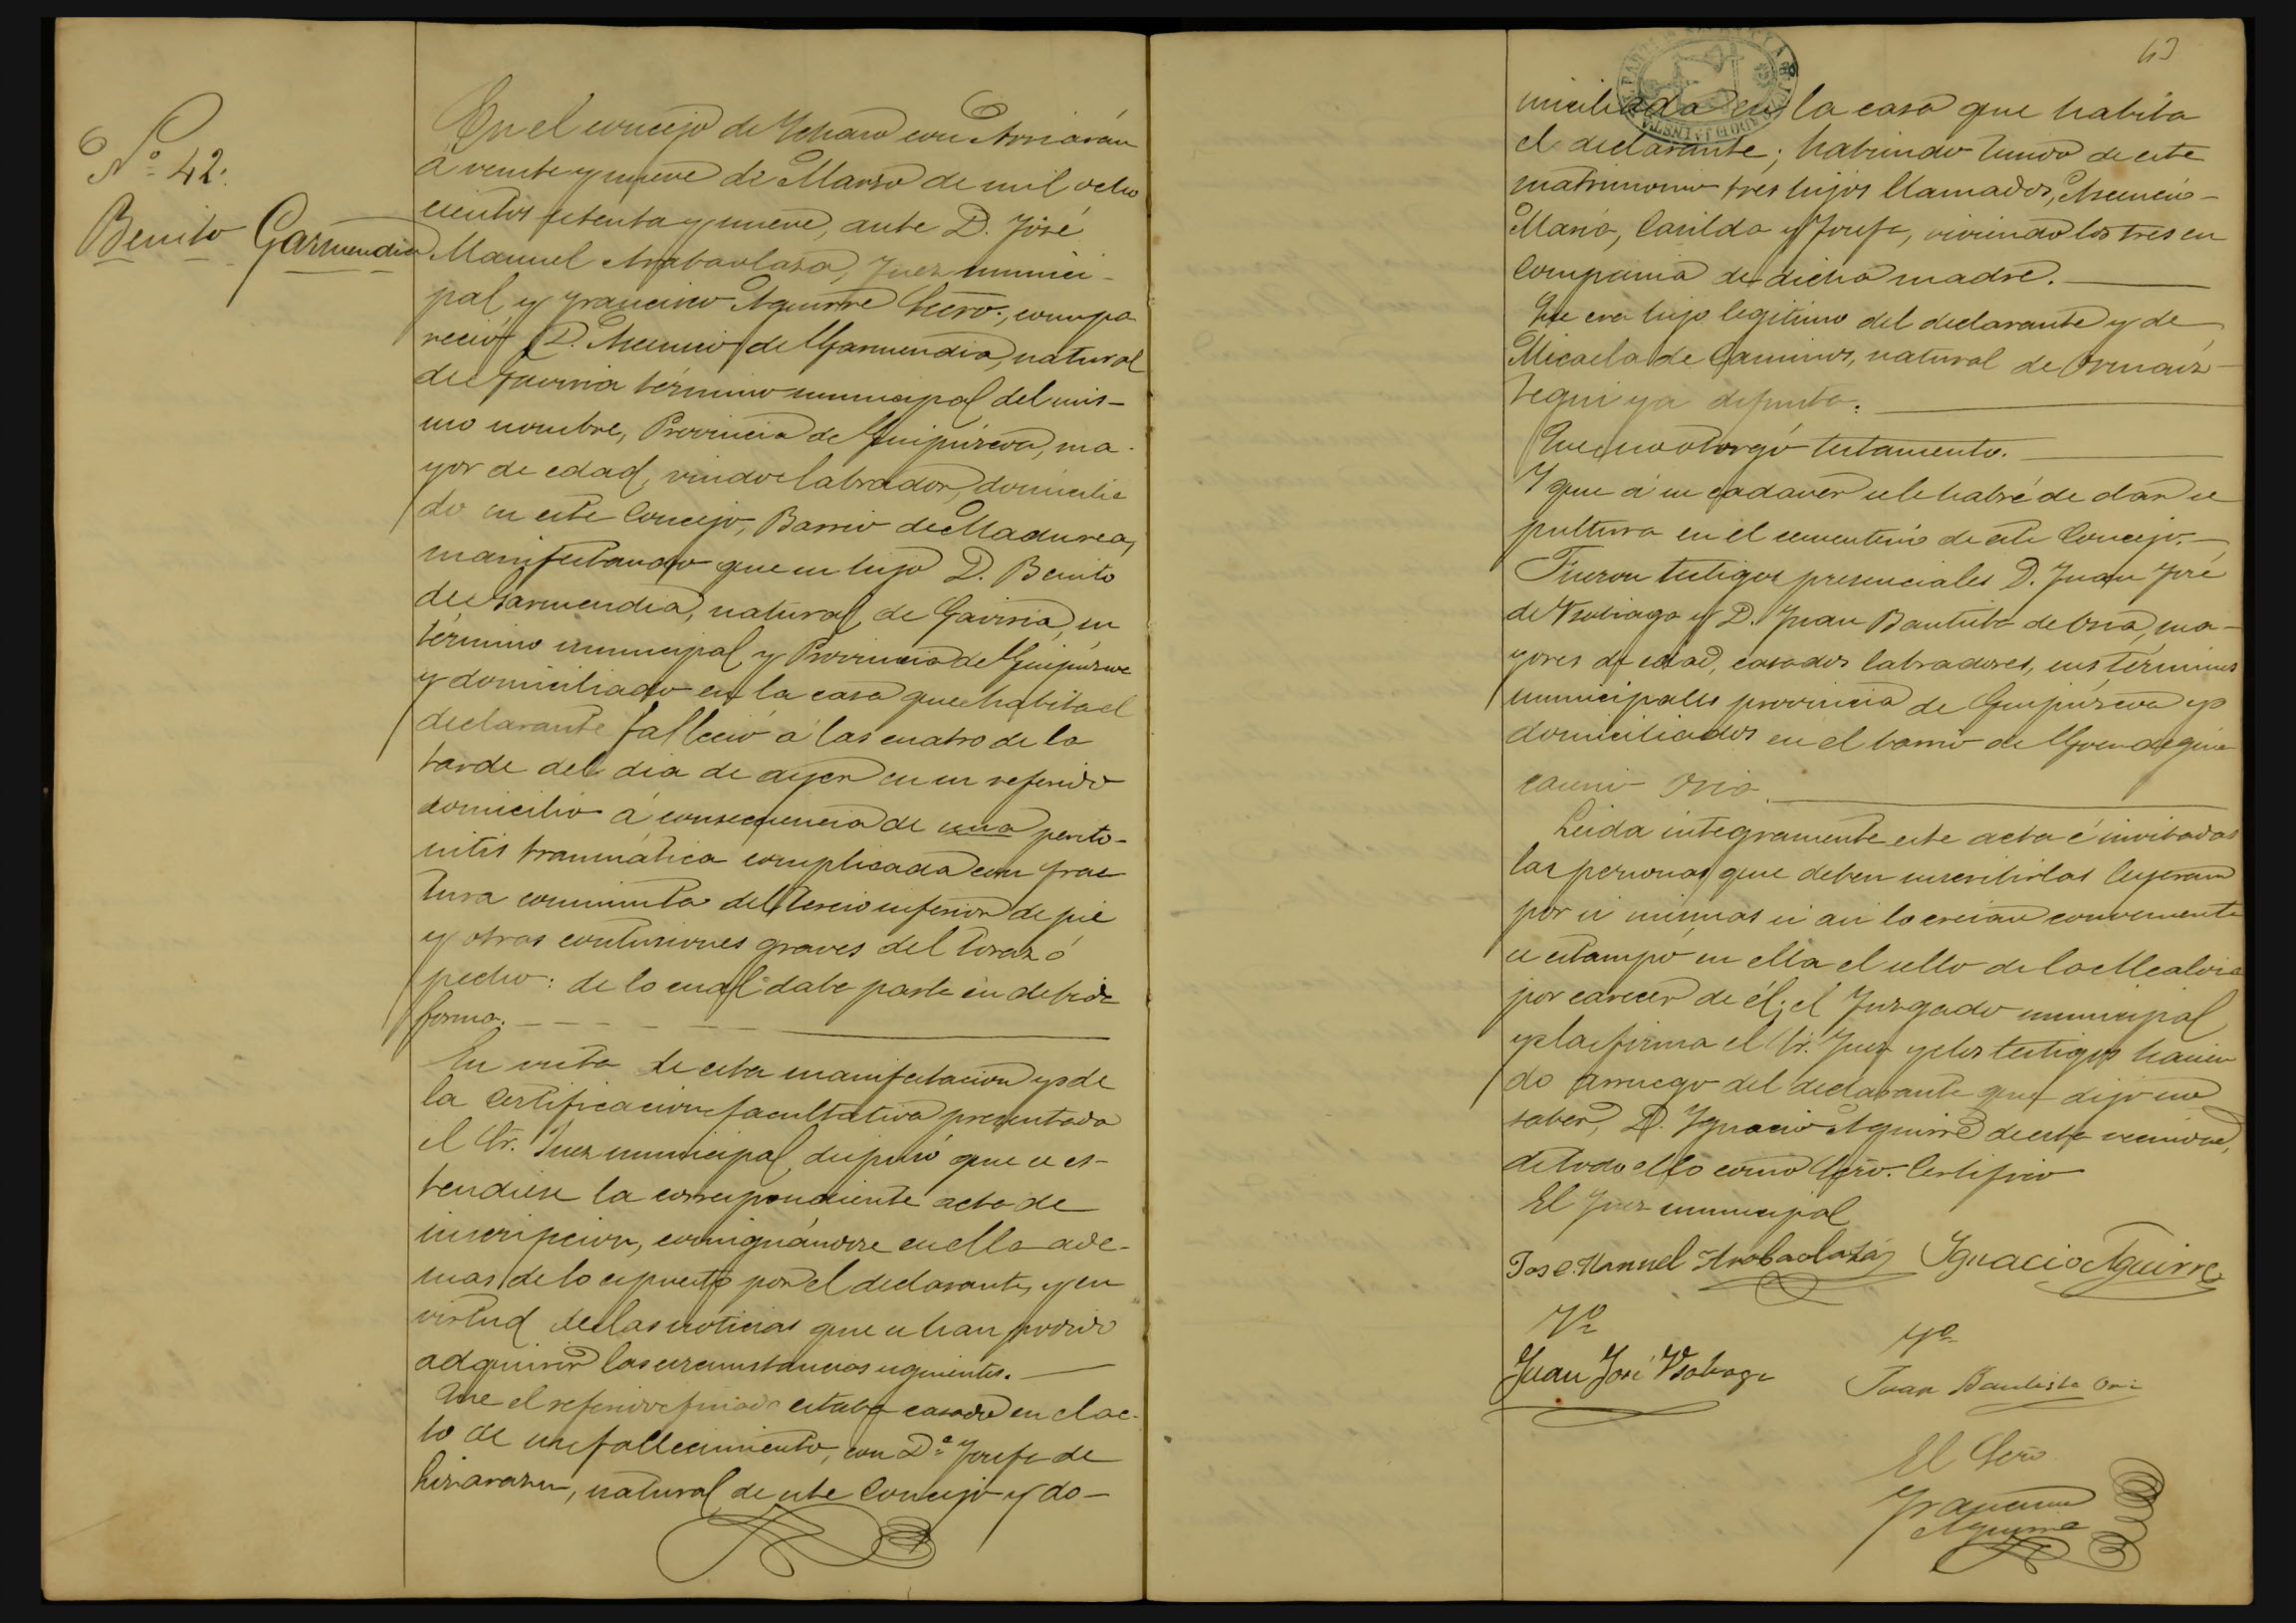 Nº 42.
Benito Garmendia
En el concejo de Ychaso con Arriarán
á veinte y nueve de Marzo de mil ocho
cientos setenta y nueve, ante D. José
Manuel Arabaolaza, Juez munici-
pal, y Francisco Aguirre Srro., compa
reció D. Asencio de Garmendia, natural
de Gaviria término municipal del mis-
mo nombre, Provincia de Guipúzcoa, ma-
yor de edad, viudo labrador, domicilia
do en este Concejo, Barrio de Madurea,
manifestando que su hijo D. Benito
de Garmendia, natural de Gaviria, su
término municipal y Provincia de Guipúzcoa
y domiciliado en la casa que habita el
declarante falleció á las cuatro de la
tarde del dia de ayer en su referido
domicilio á consecuencia de una perito-
nitis traumática complicada con frac
tura conminuta del tercio inferior de pié
y otras contusiones graves del torax ó
pecho: de lo cual daba parte en debida
forma.
En vista de esta manifestacion y de
la Certificacion facultativa presentada
el Sr. Juez municipal, dispuso que se es-
tendiese la correspondiente acta de
inscripcion, consignándose en ella ade-
mas de lo espuesto por el declarante, y en
virtud de las noticias que se han podido
adquirir las circunstancias siguientes.
Que el referido finado estaba casado en el ac-
to de su fallecimiento, con Dª Josefa de
Lizarazu, natural de este Concejo y do-
43
miciliada en la casa que habita
el declarante; habiendo tenido de este
matrimonio tres hijos llamados, Asencio-
Maria, Casilda y Josefa, viviendo los tres en
compania de dicha madre.
Que era hijo legitimo del declarante y de
Micaela de Caminos, natural de Ormaiz-
tegui ya difunta.
Que no otorgó testamento.
Y que á su cadaver se le habrá de dar se
pultura en el cementerio de este Concejo.
Fueron testigos presenciales D. Juan José
de Ysobiaga y D. Juan Bautista de Oria, ma-
yores de edad, casados labradores, sus términos
municipales provincia de Guipúzcoa y
domiciliados en el barrio de
Oria.
Leida integramente este acta é invitadas
las personas que deben suscribirlas leyeran
por si mismas si asi lo creian conveniente
se estampó en ella el sello de la Alcaldia
por carecer de él, el Juzgado municipal
y la firma el Sr. Juez y los testigos hacien
do arruego del declarante que dijo no
saber, D. Ygnacio Aguirre de esta vecindad,
de todo ello como Srro. Certifico
El Juez municipal
Jose Manuel Arabaolaza Ygnacio Aguirre
Tº
Juan José Ysobiaga
Tº
Juan Bautista Oria
El Srro
Francisco
Aguirre